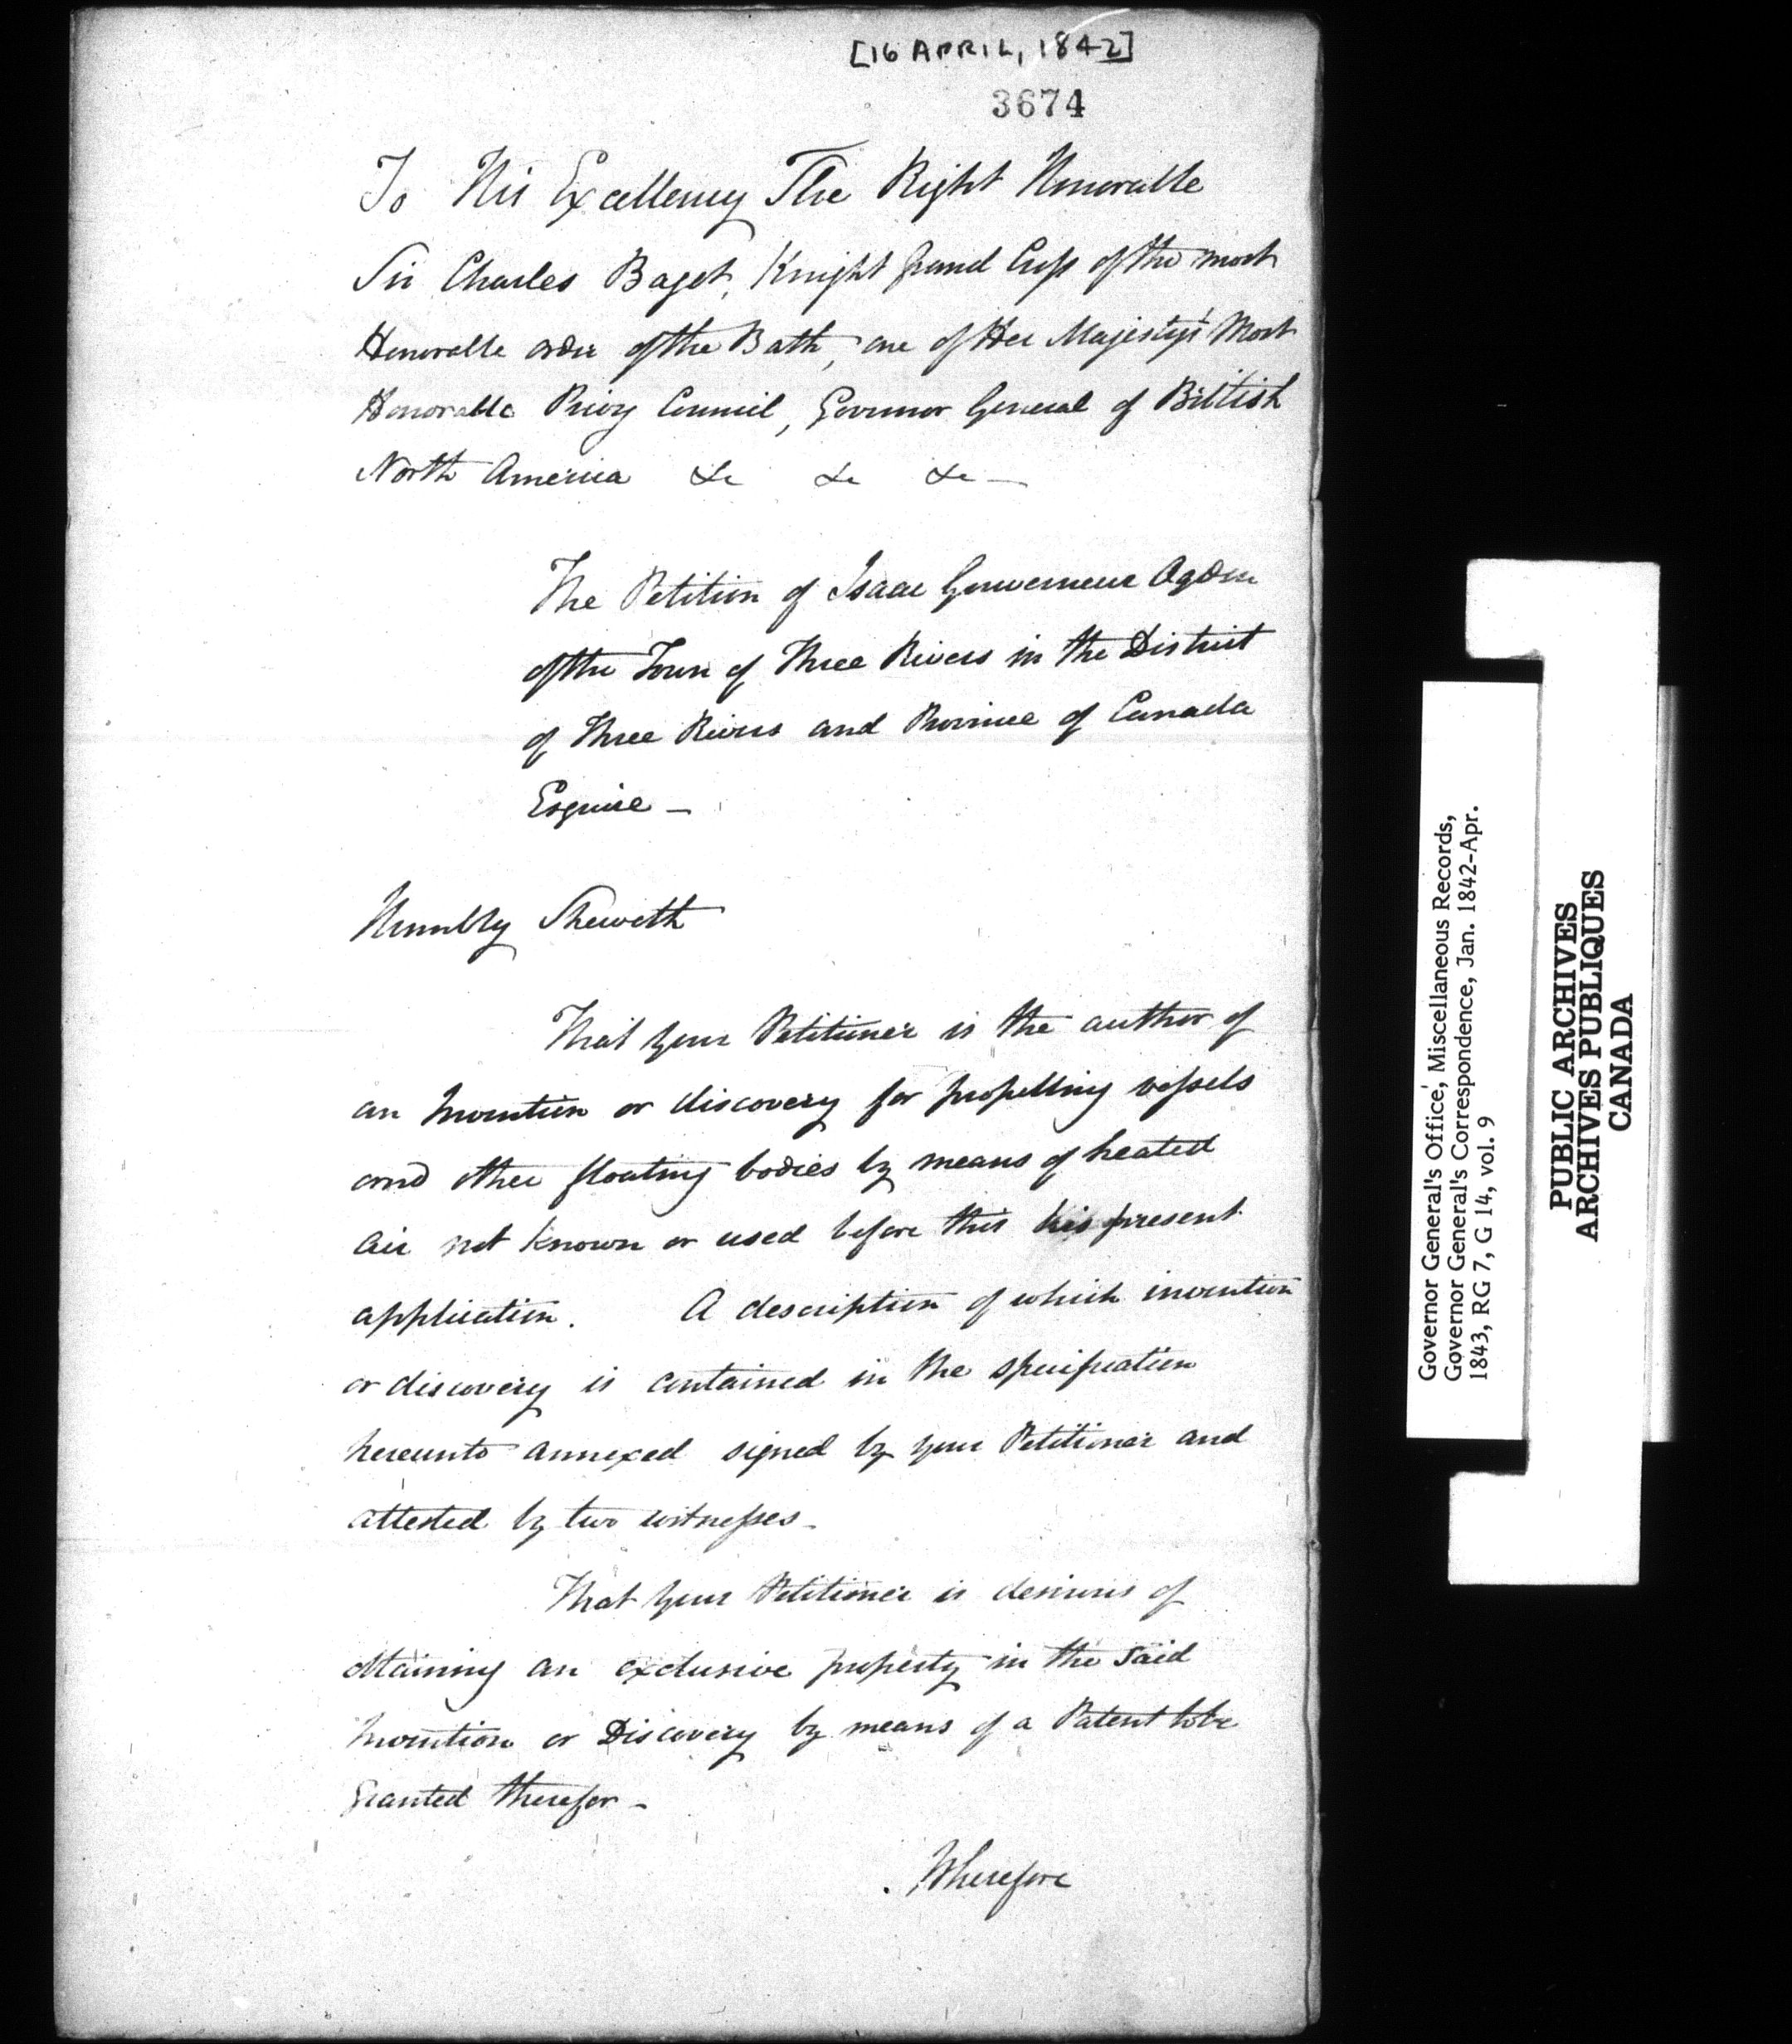 [16 APRIL, 1842]
3674
To His Excellency The Right Honorable
Sir Charles Bagot, Knight Grand Cross of the most
Honorable order of the Bath, one of Her Majesty's Most
Honorable Privy Council, Governor General of British
North America &c &c &c —
The Petition of Isaac Gouverneur Ogden
of the Town of Three Rivers in the District
of Three Rivers and Province of Canada
Esquire —
Humbly Sheweth
That your Petitioner is the author of
an Invention or discovery for propelling vessels
and other floating bodies by means of heated
air not known or used before this his present
application. A description of which invention
or discovery is contained in the specification
hereunto annexed signed by your Petitioner and
attested by two witnesses —
That your Petitioner is desirous of
obtaining an exclusive property in the said
Invention or Discovery by means of a Patent to be
Granted therefor —
Wherefore
Governor General's Office, Miscellaneous Records,
Governor General's Correspondence, Jan. 1842-Apr.
1843, RG 7, G 14, vol. 9
PUBLIC ARCHIVES
ARCHIVES PUBLIQUES
CANADA